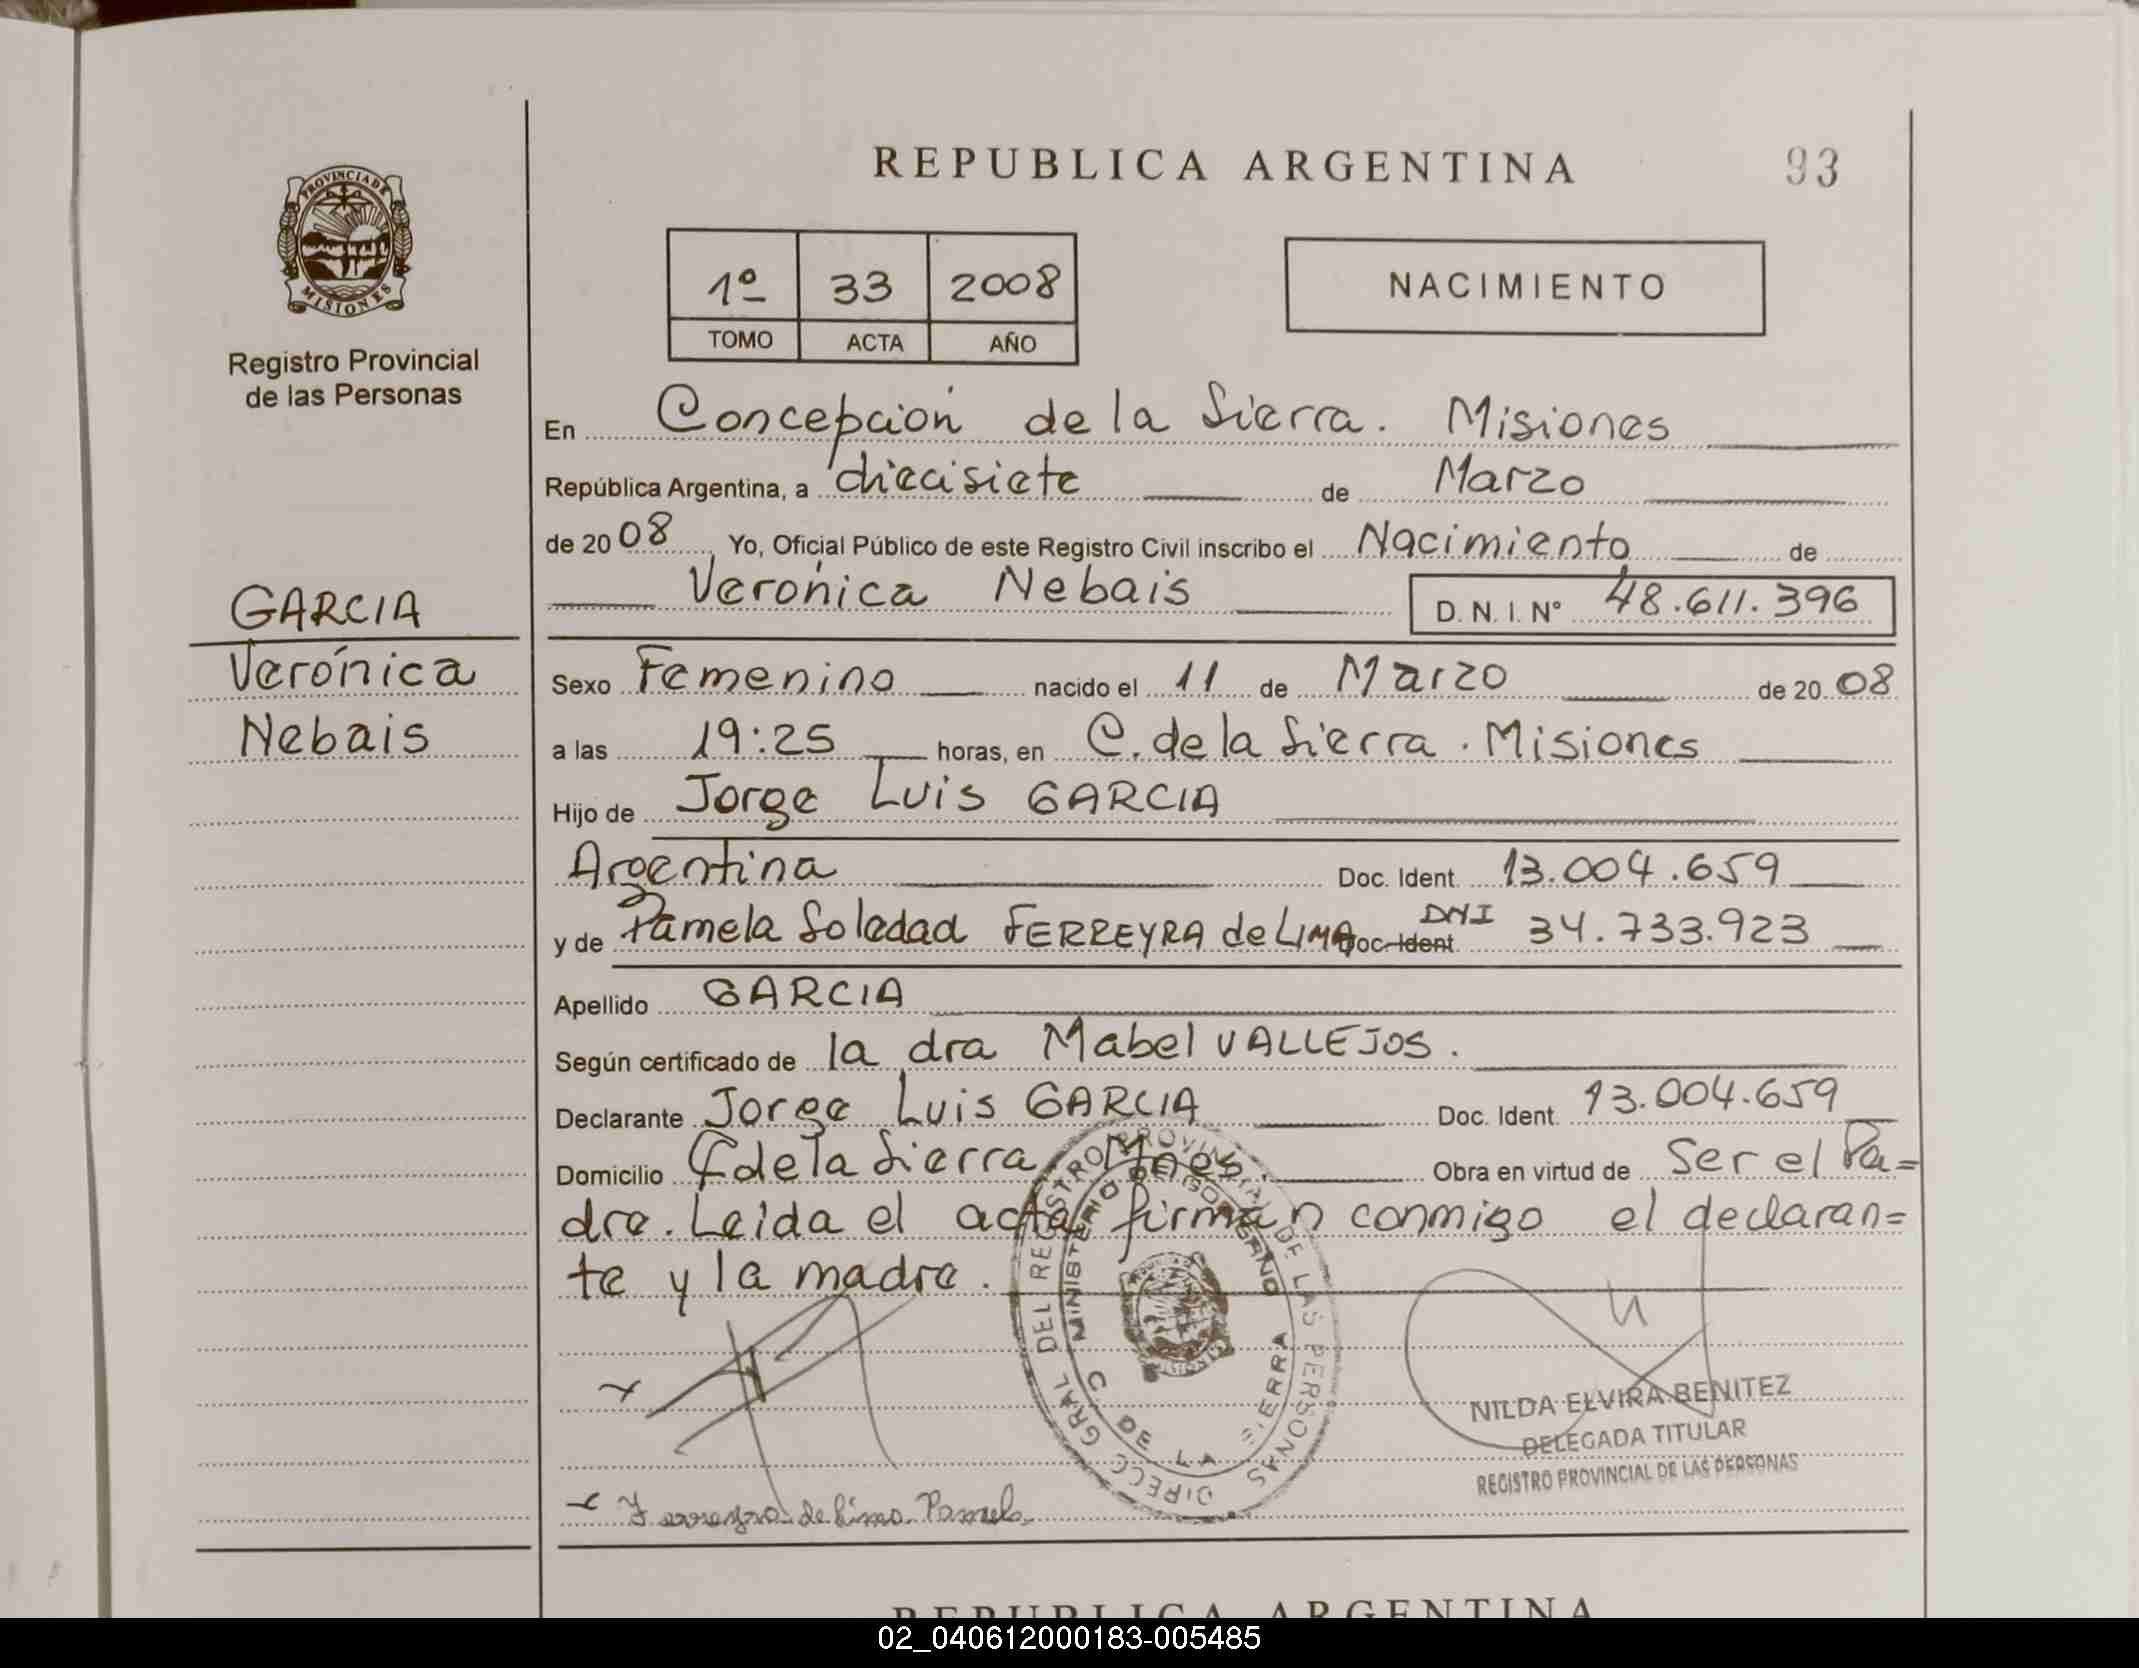 REPUBLICA ARGENTINA
93
PROVINCIA DE
MISIONES
Registro Provincial
de las Personas
1º 33 2008
TOMO ACTA AÑO
NACIMIENTO
En Concepción de la Sierra. Misiones
República Argentina, a diecisiete de Marzo
de 2008, Yo, Oficial Público de este Registro Civil inscribo el Nacimiento de
Verónica Nebais D. N. I. Nº 48.611.396
GARCIA
Verónica
Nebais
Sexo Femenino nacido el 11 de Marzo de 2008
a las 19:25 horas, en C. de la Sierra. Misiones
Hijo de Jorge Luis GARCIA
Argentina Doc. Ident. 13.004.659
y de Pamela Soledad FERREYRA de LIMA Doc. Ident DNI 34.733.923
Apellido GARCIA
Según certificado de la dra Mabel VALLEJOS.
Declarante Jorge Luis GARCIA Doc. Ident. 13.004.659
Domicilio C de la Sierra Mnes Obra en virtud de Ser el Pa=
dre. Leida el acta firman conmigo el declaran=
te y la madre.
DIRECC GRAL DEL REGISTRO PROVINCIAL DE LAS PERSONAS
MINISTERIO DE GOBIERNO
C DE LA SIERRA
NILDA ELVIRA BENITEZ
DELEGADA TITULAR
REGISTRO PROVINCIAL DE LAS PERSONAS
Ferreyra de Lima Pamela
REPUBLICA ARGENTINA
02_040612000183-005485